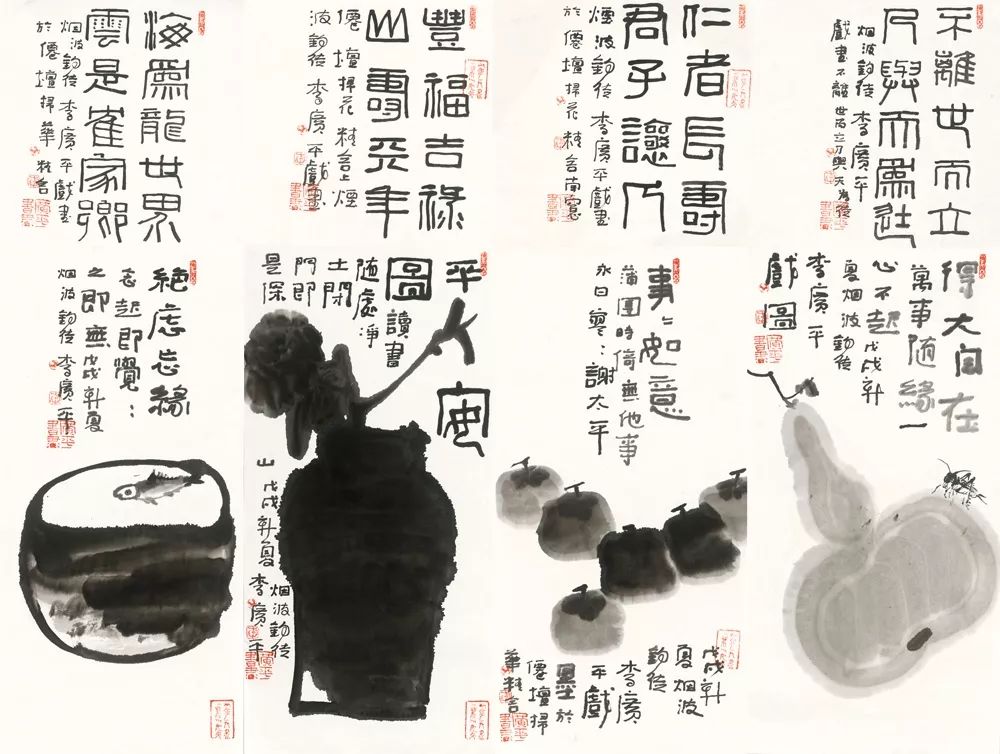 不離世而立
乃與天為徒
烟波釣徒李廣平
戲畫不離世而立乃與天為徒
仁者長壽
君子人
煙波釣徒李廣平戲畫
於僊壇掃花精舍南窗
豐福吉祿
山壽天年
僊壇掃花精舍上煙
波釣徒李廣平戲畫
海為龍世界
雲是隺家鄉
烟波釣徒李廣平戲畫
於僊壇掃華精舍
得大自在
萬事隨緣一
心不起戊戌新
夏烟波釣徒
李廣平
戲圖
事〻如意
蒲團時倚無他事
永日寥〻謝太平
戊戌新
夏烟波
釣徒
李廣
平戲
墨於
僊壇掃
華精舍
平安
圖讀書
隨處淨
土閉
門即
是深
山戊戌新夏
烟波釣徒
李廣平
絕慮忘緣
念起即覺〻
之即無戊戌新夏
烟波釣徒李廣平